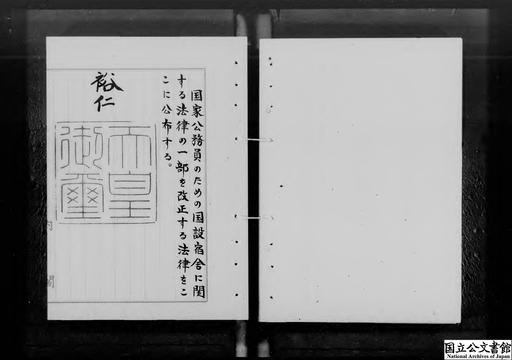 国家公務員のための国設宿舎に関
する法律の一部を改正する法律をこ
こに公布する。
裕仁
天皇
御璽
内閣
国立公文書館
National Archives of Japan